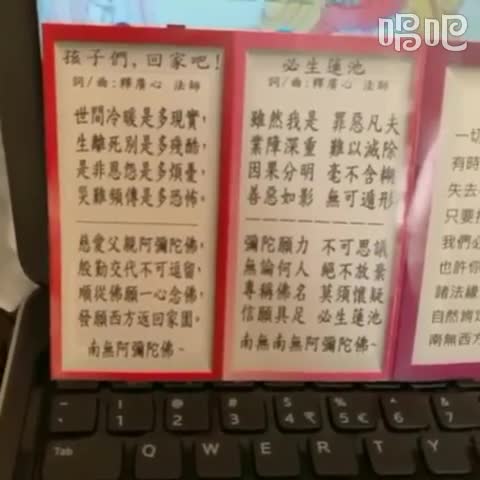 唱吧
孩子們,回家吧!
詞/曲:釋廣心 法師
世間冷暖是多現實,
生離死別是多殘酷,
是非恩怨是多煩憂,
災難頻傳是多恐怖,
慈愛父親阿彌陀佛,
殷勤交代不可逗留,
順從佛願一心念佛,
發願西方返回家園,
南無阿彌陀佛~
必生蓮池
詞/曲:釋廣心 法師
雖然我是 罪惡凡夫
業障深重 難以滅除
因果分明 毫不含糊
善惡如影 無可遁形
彌陀願力 不可思議
無論何人 絕不放棄
專稱佛名 莫須懷疑
信願具足 必生蓮池
南無南無阿彌陀佛~
一切
有時
失去
只要
我們必
也許你
諸法緣
自然肯
南無西方
! 1
@ 2
# 3
$ 4 ₹
% 5 €
^ 6
& 7
Tab Q W E R T Y